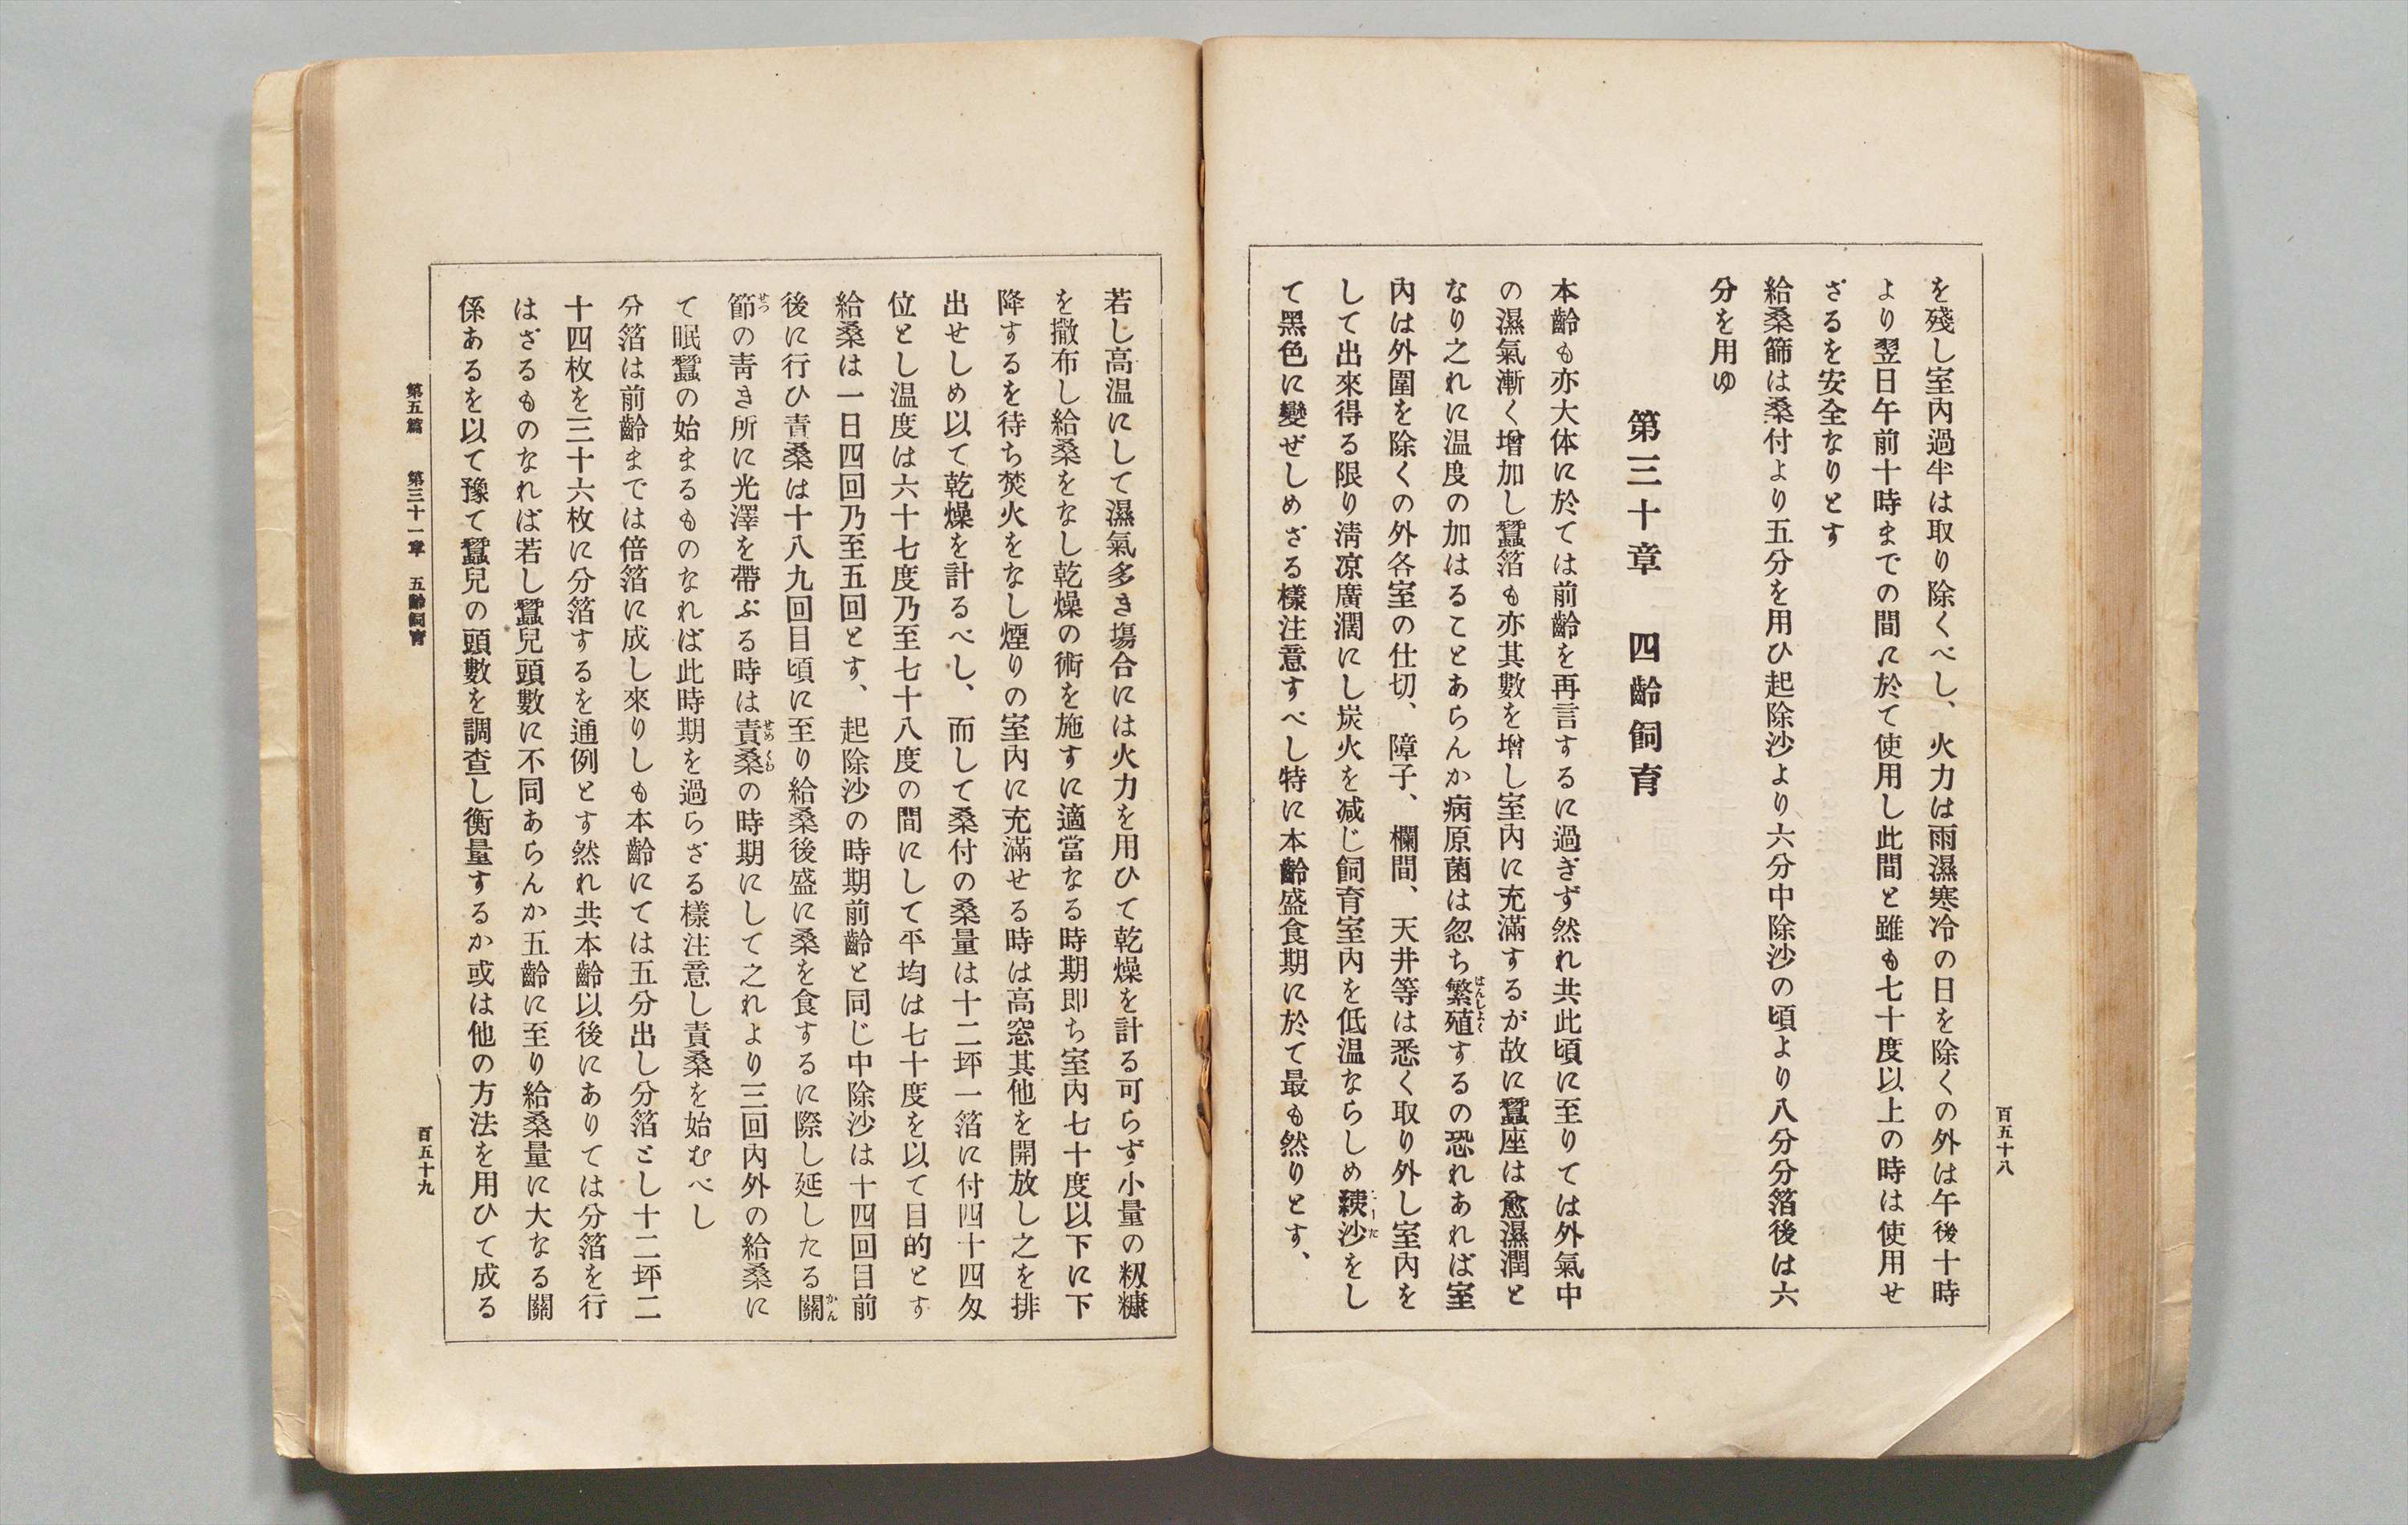 百五十八
を殘し室內過半は取り除くべし、火力は雨濕寒冷の日を除くの外は午後十時
より翌日午前十時までの間に於て使用し此間と雖も七十度以上の時は使用せ
ざるを安全なりとす
給桑篩は桑付より五分を用ひ起除沙より六分中除沙の頃より八分分箔後は六
分を用ゆ
第三十章　四齡飼育
本齡も亦大体に於ては前齡を再言するに過ぎず然れ共此頃に至りては外氣中
の濕氣漸く增加し蠶箔も亦其數を增し室內に充滿するが故に蠶座は愈濕潤と
なり之れに温度の加はることあらんか病原菌は忽ち繁殖するの恐れあれば室
はんしよく
內は外圍を除くの外各室の仕切、障子、欄間、天井等は悉く取り外し室內を
して出來得る限り淸凉廣濶にし炭火を减じ飼育室內を低温ならしめ䅧沙をし
て黑色に變ぜしめざる樣注意すべし特に本齡盛食期に於て最も然りとす、
若し高温にして濕氣多き塲合には火力を用ひて乾燥を計る可らず小量の籾糠
を撒布し給桑をなし乾燥の術を施すに適當なる時期即ち室內七十度以下に下
降するを待ち焚火をなし煙りの室內に充滿せる時は高窓其他を開放し之を排
出せしめ以て乾燥を計るべし、而して桑付の桑量は十二坪一箔に付四十四匁
位とし温度は六十七度乃至七十八度の間にして平均は七十度を以て目的とす
給桑は一日四回乃至五回とす、起除沙の時期前齡と同じ中除沙は十四回目前
後に行ひ責桑は十八九回目頃に至り給桑後盛に桑を食するに際し延したる關
かん
節の靑き所に光澤を帶ぶる時は責桑の時期にして之れより三回內外の給桑に
せつ
せめくわ
て眠蠶の始まるものなれば此時期を過らざる樣注意し責桑を始むべし
分箔は前齡までは倍箔に成し來りしも本齡にては五分出し分箔とし十二坪二
十四枚を三十六枚に分箔するを通例とす然れ共本齡以後にありては分箔を行
はざるものなれば若し蠶兒頭數に不同あらんか五齡に至り給桑量に大なる關
係あるを以て豫て蠶兒の頭數を調査し衡量するか或は他の方法を用ひて成る
第五篇　第三十一章　五齡飼育
百五十九